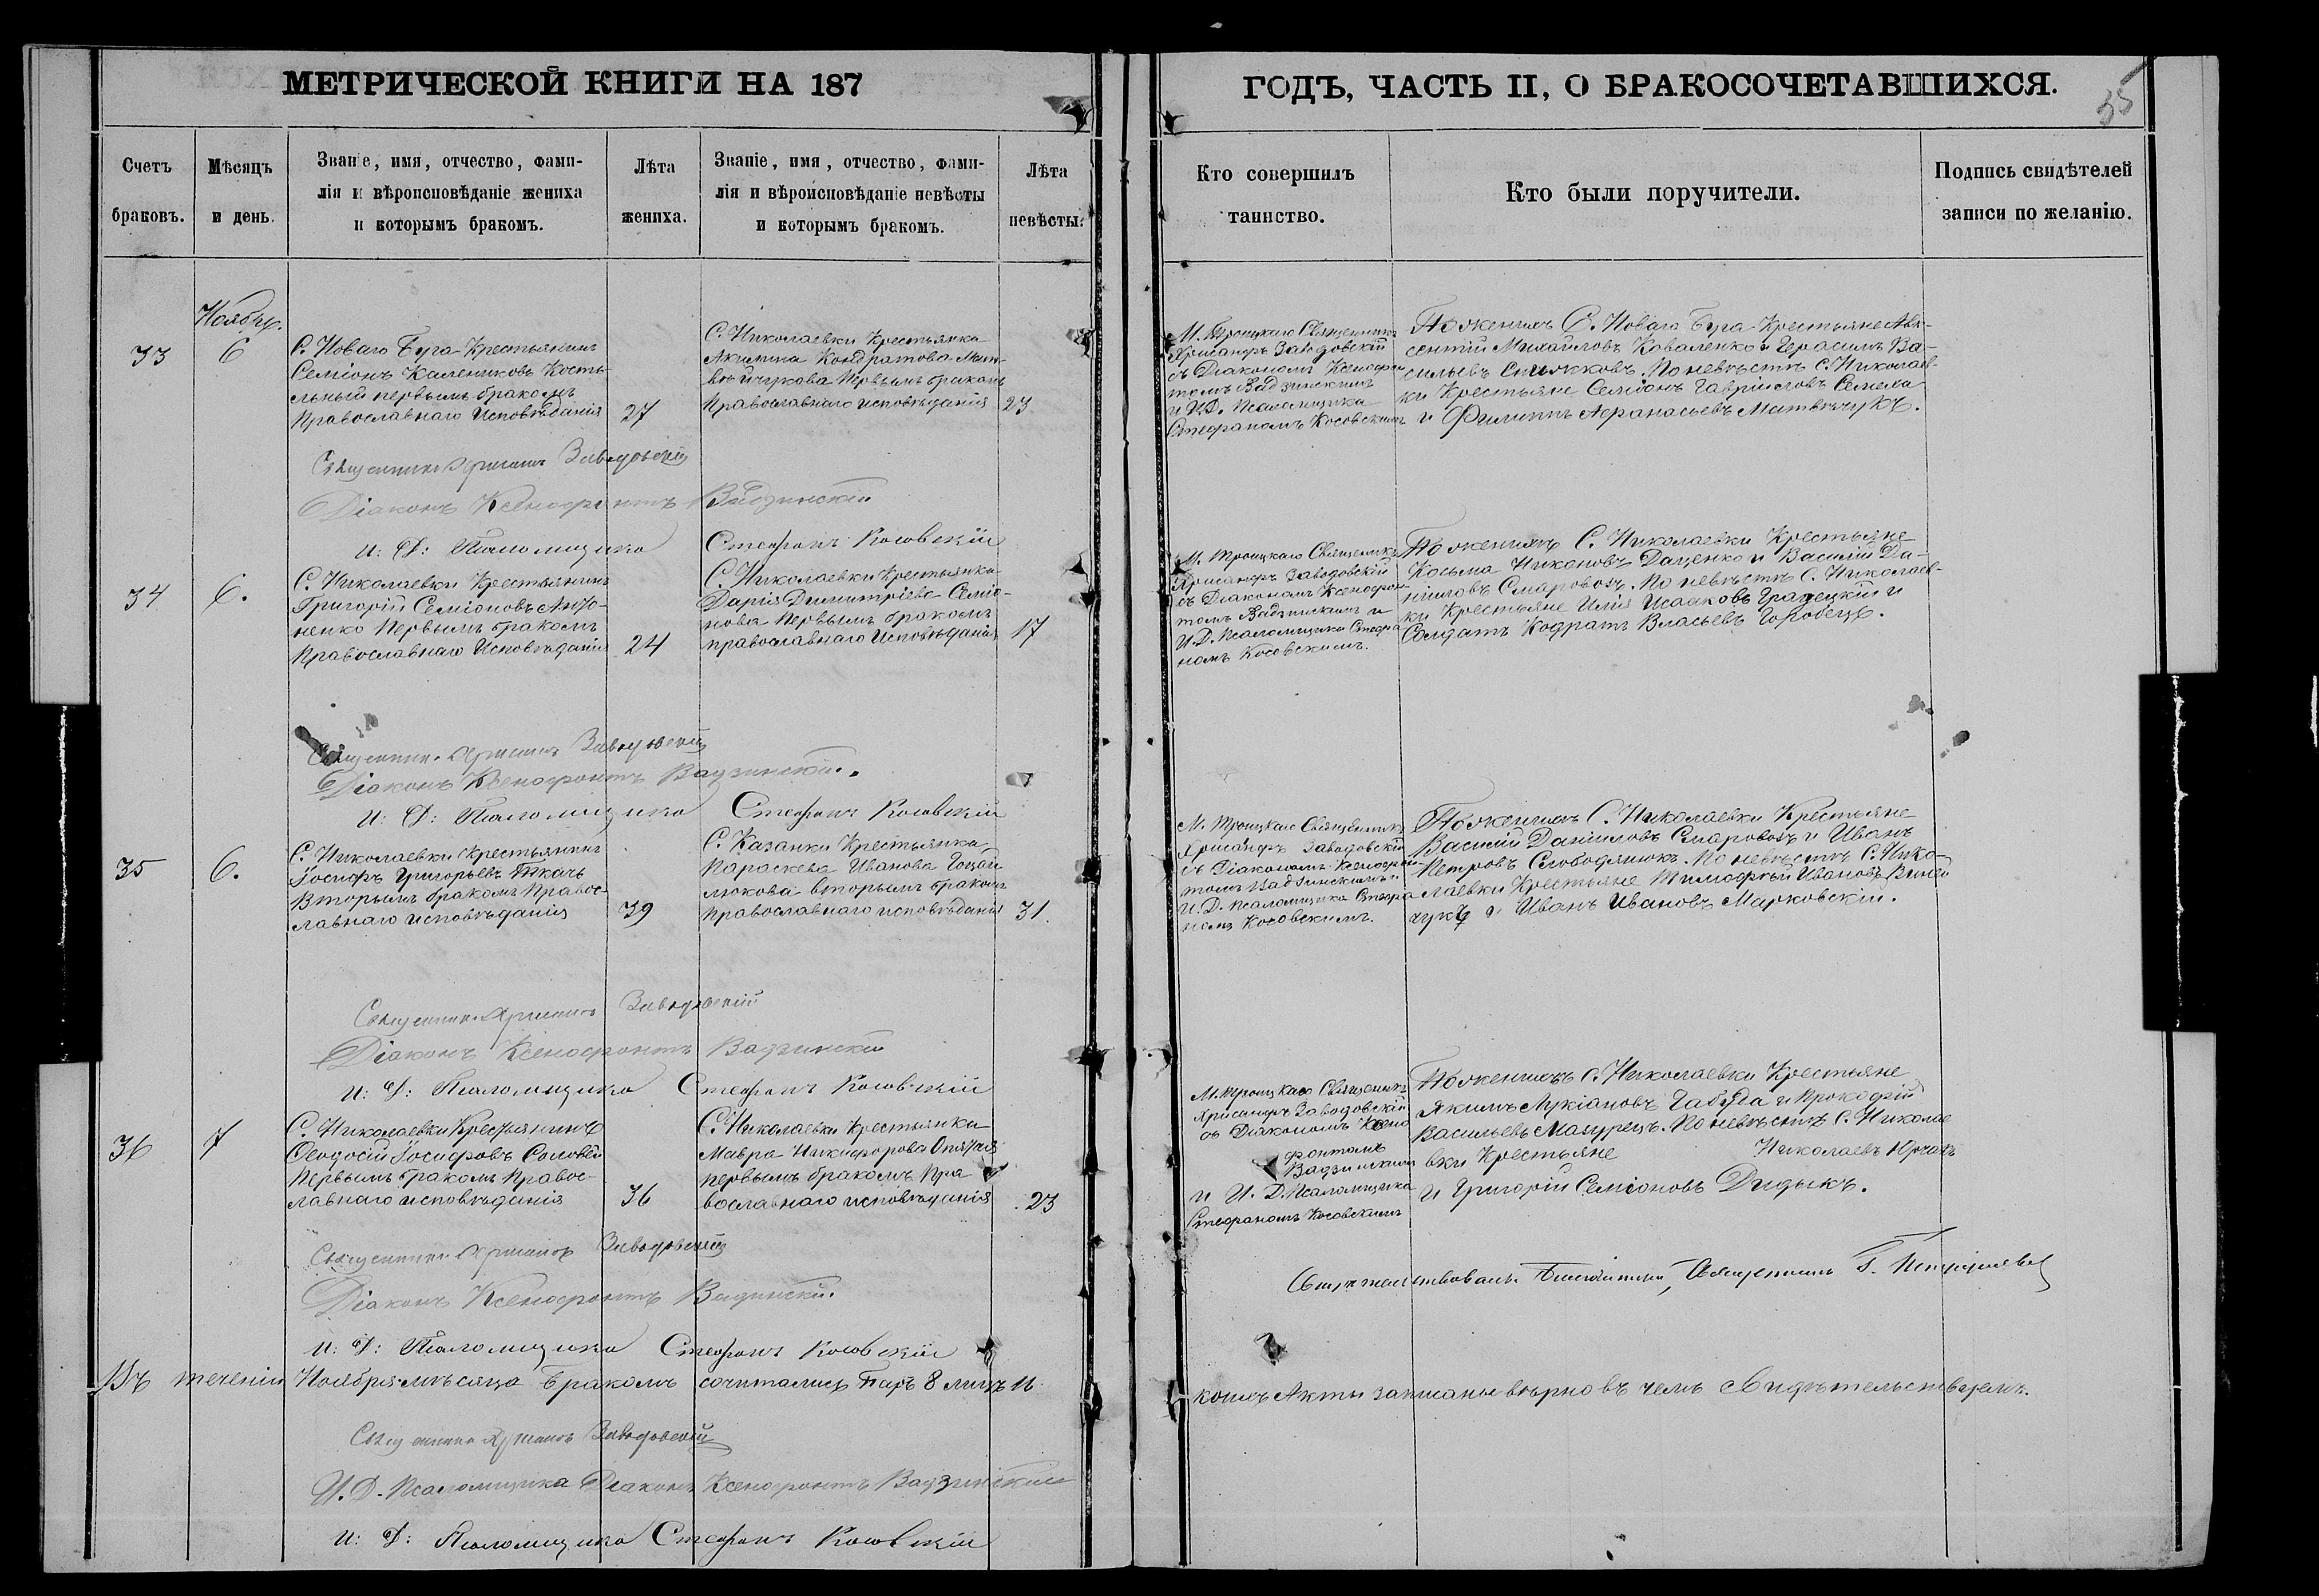 МЕТРИЧЕСКОЙ КНИГИ НА 187
ГОДЪ, ЧАСТЬ II, О БРАКОСОЧЕТАВШИХСЯ.
35
Счетъ
браковъ.
Мѣсяцъ
и день.
Званіе, имя, отчество, фами-
лія и вѣроисповѣданіе жениха
и которымъ бракомъ.
Лѣта
жениха.
Званіе, имя, отчество, фами-
лія и вѣроисповѣданіе невѣсты
и которымъ бракомъ.
Лѣта
невѣсты.
Кто совершилъ
таинство.
Кто были поручители.
Подпись свидѣтелей
записи по желанію.
Ноябрь.
33
6
С. Новаго Буга Крестьянинъ
Семіонъ Калениковъ Косте-
льный первымъ бракомъ
Православнаго Исповѣданія
27
С. Николаевки Крестьянка
Акилина Кондратова Мат-
вѣйчукова Первымъ бракомъ
Православнаго исповѣданія
23
М. Троицкаго Священникъ
Хрисанфъ Заводовскій
съ Діакономъ Ксенофон
томъ Вадзинскимъ
и И.Д. Псаломщика
Стефаномъ Косовскимъ
По женихѣ С. Новаго Буга Крестьяне Авк-
сентій Михайловъ Коваленко и Герасимъ Ва-
сильевъ. По невѣстѣ С. Николаев-
ки Крестьяне Семіонъ Гавриловъ
и Филиппъ Афанасьевъ Матвѣчукъ.
Священникъ Хрисанфъ Заводовскій
Діаконъ Ксенофонтъ Вадзинскій
И: Д: Псаломщика Стефанъ Косовскій
34
6.
С. Николаевки Крестьянинъ
Григорій Семіоновъ Анто-
ненко Первымъ бракомъ
Православнаго Исповѣданія
24
С. Николаевки Крестьянка
Дарія Димитріева Семіо-
нова Первымъ бракомъ
православнаго Исповѣданія
17
М. Троицкаго Священникъ
Хрисанфъ Заводовскій
съ Діакономъ Ксенофон-
томъ Вадзинскимъ и
И.Д. Псаломщика Стефа
номъ Косовскимъ.
По женихѣ С. Николаевки Крестьяне
Косьма Никоновъ Даценко и Василій Да-
ниловъ Смаровозъ. По невѣстѣ С. Николаев-
ки Крестьяне Илія Исааковъ и
Солдатъ Кодратъ Власьевъ Горобецъ.
Священникъ Хрисанфъ Заводовскій
Діаконъ Ксенофонтъ Вадзинскій.
И: Д: Псаломщика Стефанъ Косовскій
35
6.
С. Николаевки Крестьянинъ
Іосифъ Григорьевъ Ткачь
Вторымъ бракомъ Правос-
лавнаго исповѣданія
39
С. Казанки Крестьянка
Параскева Иванова
люкова вторымъ бракомъ
Православнаго исповѣданія
31.
М. Троицкаго Священникъ
Хрисанфъ Заводовскій
съ Діакономъ Ксенофон-
томъ Вадзинскимъ и
И.Д. Псаломщика Стефа
номъ Косовскимъ.
По женихѣ С. Николаевки Крестьяне
Василій Даниловъ Смаровозъ и Иванъ
Петровъ Слободянюкъ. По невѣстѣ С. Нико-
лаевки Крестьяне Тимофей Ивановъ
чукъ и Иванъ Ивановъ Марковскій.
Священникъ Хрисанфъ Заводовскій
Діаконъ Ксенофонтъ Вадзинскій
И: Д: Псаломщика Стефанъ Косовскій
36
7
С. Николаевки Крестьянинъ
Ѳеодосій Іосифовъ Соловей
Первымъ бракомъ Правос-
лавнаго исповѣданія
36
С. Николаевки Крестьянка
Мавра Никифорова
первымъ бракомъ Пра
вославнаго исповѣданія
23
М. Троицкаго Священникъ
Хрисанфъ Заводовскій
съ Діакономъ Ксено
фонтомъ
Вадзинскимъ
и И.Д. Псаломщика
Стефаномъ Косовскимъ
По женихѣ С. Николаевки Крестьяне
Якимъ Лукіановъ Габуда и Прокофій
Васильевъ Мазурецъ. По невѣстѣ С. Николае
вки Крестьяне Николаевъ Юрчакъ
и Григорій Семіоновъ Дидыкъ.
Священникъ Хрисанфъ Заводовскій
Діаконъ Ксенофонтъ Вадзинскій.
И: Д: Псаломщика Стефанъ Косовскій
Свидѣтельствовалъ Благочинный,
Въ теченіи Ноября мѣсяца бракомъ сочитались Паръ 8 лицъ 16
коихъ Акты записаны вѣрно въ чемъ свидѣтельствуемъ.
Священникъ Хрисанфъ Заводовскій
И.Д. Псаломщика Діаконъ Ксенофонтъ Вадзинскій
И: Д: Псаломщика Стефанъ Косовскій